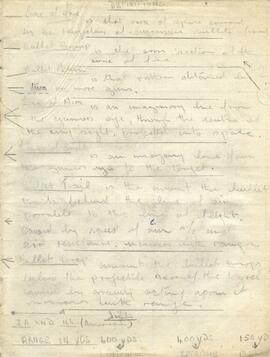 DEFINITIONS
Cone of Fire
is that area of space covered
by the projection of successive bullets from
Bullet Group
is the cross section of the
cone of fire.
Bullet Pattern
is that pattern obtained by
two or more guns.
Line of Aim
is an imaginary line from
the gunners eye, through the centre of
the ring sight, projected into space.
is an imaginary line from
the gunners eye to the target.
Bullet Trail
is the amount the bullet
trails behind the plane of aim
parallel to the line of flight.
Caused by speed of own a/c and
air resistance. increases with range
Bullet Drop
amount the bullet drops
below the projected axis of the bore
caused by gravity acting upon it
increases with range.
RANGE IN YDS 600 YDS 400 YDS 150 YDS